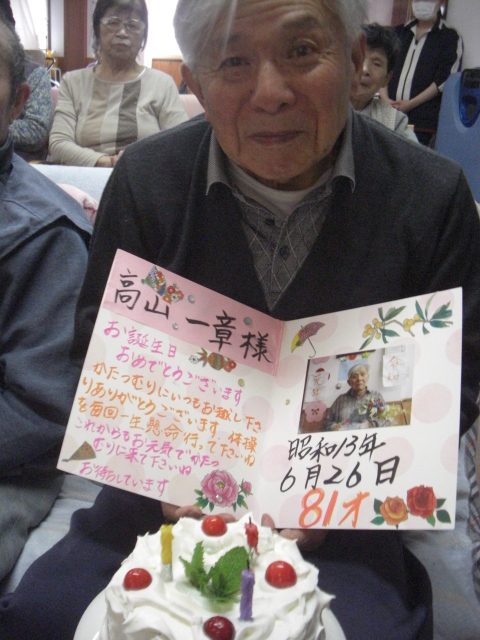 高山 一章様
お誕生日
おめでとうございます
かたつむりにいつもお越し下さ
りありがとうございます。体操
を毎回一生懸命行って下さいね
これからもお元気でかたつ
むりに来て下さいね
お待ちしています
昭和13年
6月26日
81才